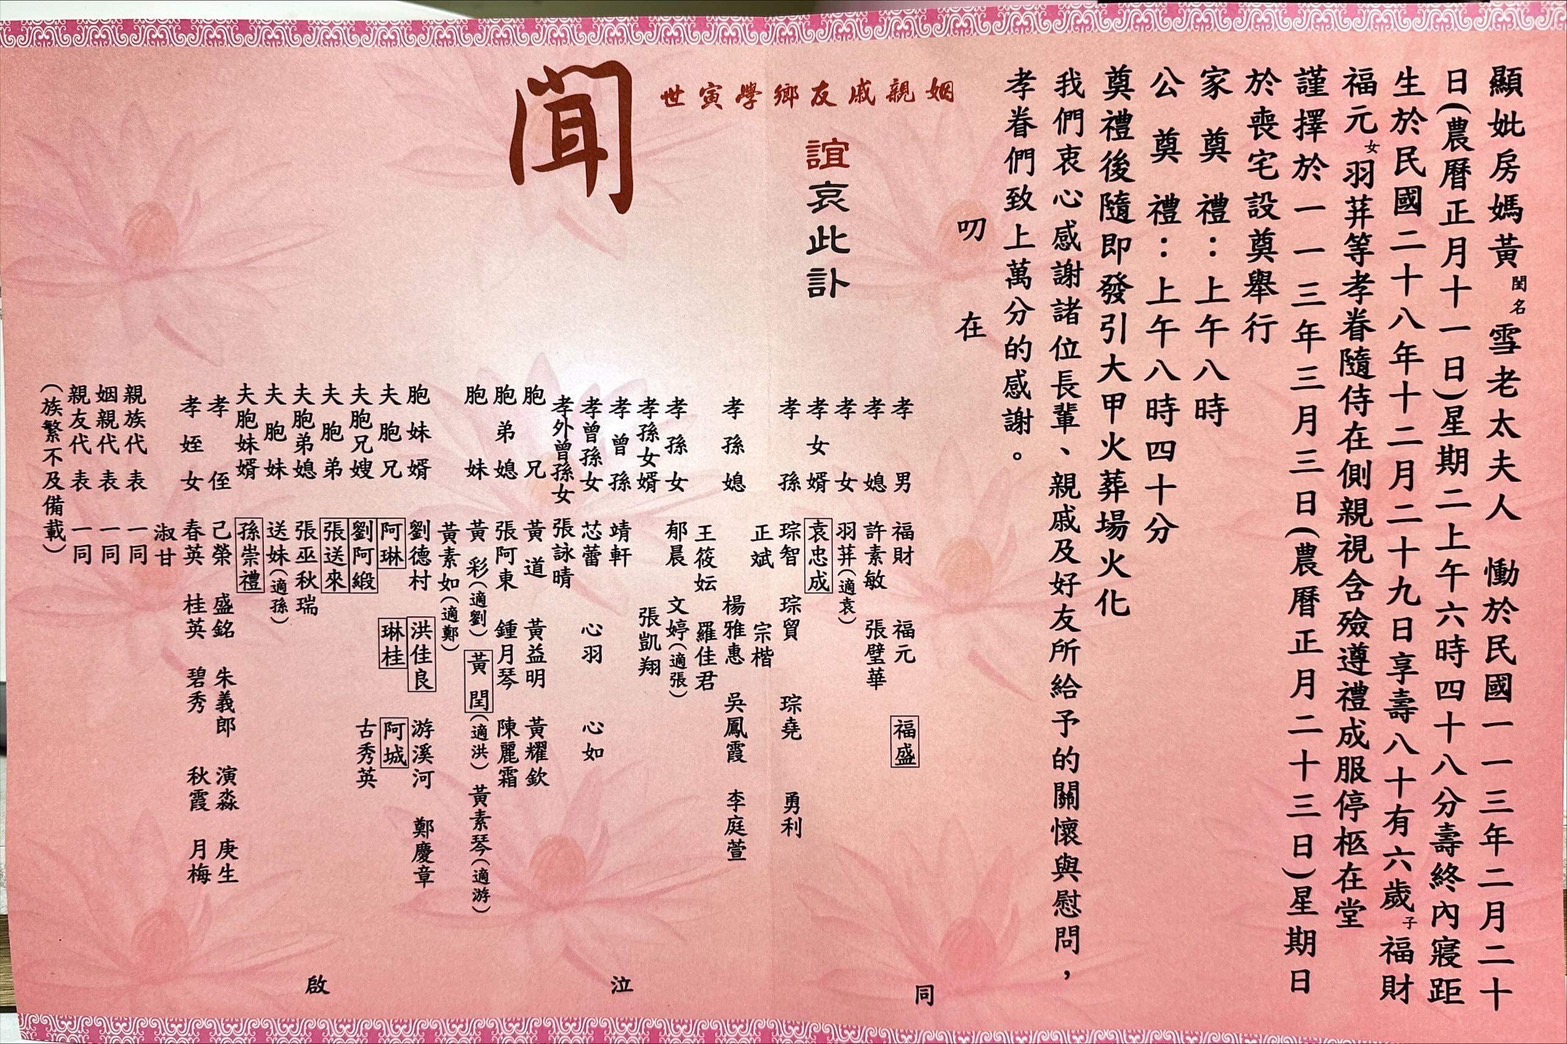 顯妣房媽黃閨名雪老太夫人 慟於民國一一三年二月二十
日(農曆正月十一日)星期二上午六時四十八分壽終內寢距
生於民國二十八年十二月二十九日享壽八十有六歲子福財
福元女羽菶等孝眷隨侍在側親視含殮遵禮成服停柩在堂
謹擇於一一三年三月三日(農曆正月二十三日)星期日
於喪宅設奠舉行
家奠禮：上午八時
公奠禮：上午八時四十分
奠禮後隨即發引大甲火葬場火化
我們衷心感謝諸位長輩、親戚及好友所給予的關懷與慰問，
孝眷們致上萬分的感謝。
叨在
姻親戚友鄉學寅世
誼哀此訃
聞
孝男 福財 福元 福盛
孝媳 許素敏 張壁華
孝女 羽菶(適袁)
孝女婿 袁忠成
孝孫 琮智 琮貿 琮堯 勇利
正斌 宗楷
孝孫媳 楊雅惠 吳鳳霞 李庭萱
王筱妘 羅佳君
孝孫女 郁晨 文婷(適張)
孝孫女婿 張凱翔
孝曾孫 靖軒
孝曾孫女 芯蕾 心羽 心如
孝外曾孫女 張詠晴
胞兄 黃道 黃益明 黃耀欽
胞弟媳 張阿東 鍾月琴 陳麗霜
胞妹 黃彩(適劉) 黃閏(適洪) 黃素琴(適游)
黃素如(適鄭)
胞妹婿 劉德村 洪佳良 游溪河 鄭慶章
夫胞兄 阿琳 琳桂 阿城
夫胞兄嫂 劉阿緞 古秀英
夫胞弟 張送來
夫胞弟媳 張巫秋瑞
夫胞妹 送妹(適孫)
夫胞妹婿 孫崇禮
孝侄 己榮 盛銘 朱義郎 演淼 庚生
孝姪女 春英 桂英 碧秀 秋霞 月梅
淑甘
親族代表一同
姻親代表一同
親友代表一同
(族繁不及備載)
同
泣
啟